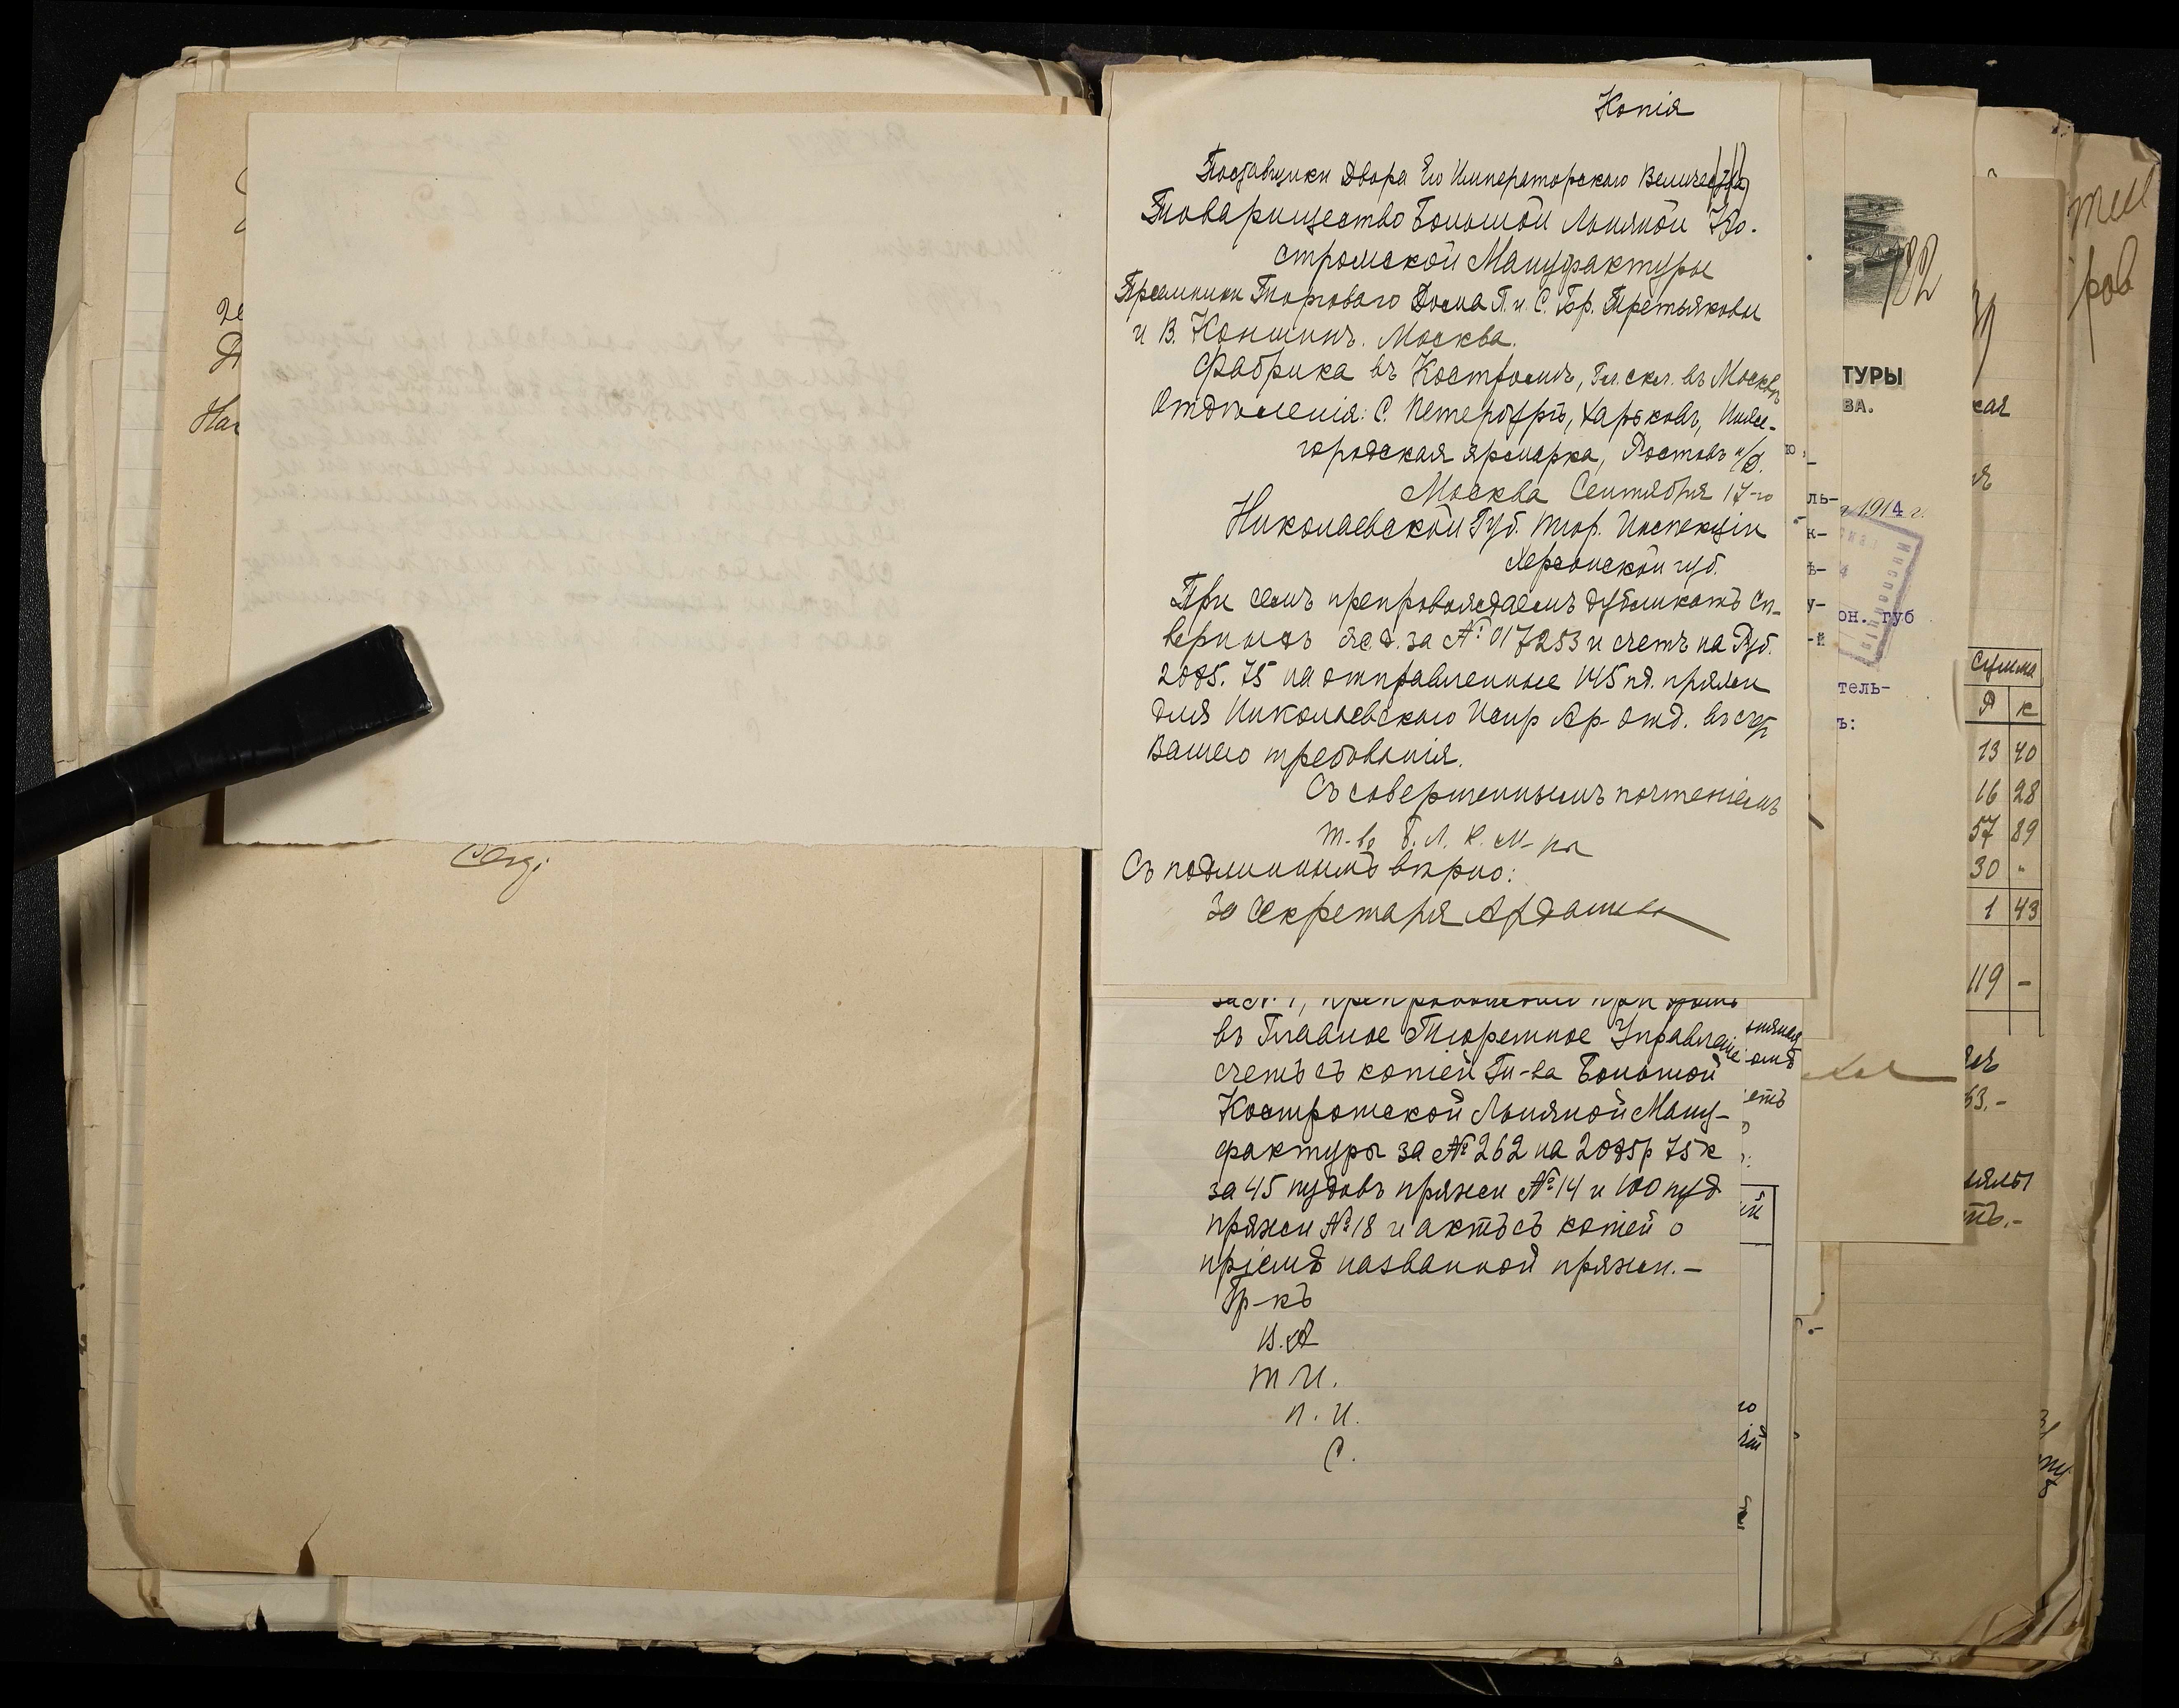 Копія
Поставщики Двора Его Императорскаго Величества
Товарищество Большой Льняной Ко-
стромской Мануфактуры
Преемники Торговаго Дома П. и С. Бр. Третьяковы
и В. Коншинъ. Москва.
Фабрика въ Костромѣ, Гл. скл. въ Москвѣ
Отдѣленія: С. Петербургъ, Харьковъ, Ниже-
городская ярмарка, Ростовъ н/Д.
Москва Сентября 17-го
Николаевской Губ. Тюр. Инспекціи
Херсонской губ.
При семъ препровождаемъ дубликатъ Сѣ-
верныхъ ж. д. за № 017253 и счетъ на Руб.
2085.75 на отправленные 145 пд. пряжи
для Николаевскаго Испр Ар отд. въ счетъ
Вашего требованія.
Съ совершеннымъ почтеніемъ
Т-во Б. Л. К. М-ры
Съ подлиннымъ вѣрно:
За Секретаря
за № 1, препровождаю при семъ
въ Главное Тюремное Управленіе
счетъ съ копіей Т-ва Большой
Костромской Льняной Ману-
фактуры за № 262 на 2085р 75к
за 45 пудовъ пряжи № 14 и 100 пуд
пряжи № 18 и актъ съ копіей о
пріемѣ названной пряжи.-
Тр-къ
Т.И.
п. И.
С.
182
ТУРЫ
ВА.
1914 г.
он. губ
тель-
ъ:
Сумма
Р к
13 40
16 28
57 89
30 -
1 43
119 -
63.-